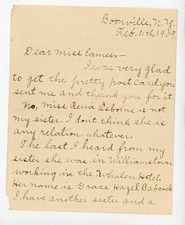 Boonville, N.Y.
Feb. 11th, 1909
Dear Miss Eames—
I was very glad
to get the pretty post card you
sent me and thank you for it.
No, Miss Rena Osborne is not
my sister. I don't think she is
any relation whatever.
The last I heard from my
sister she was in Williamstown
working in the Whalen Hotel.
Her name is Grace Hazel Babcock
I have another sister and a